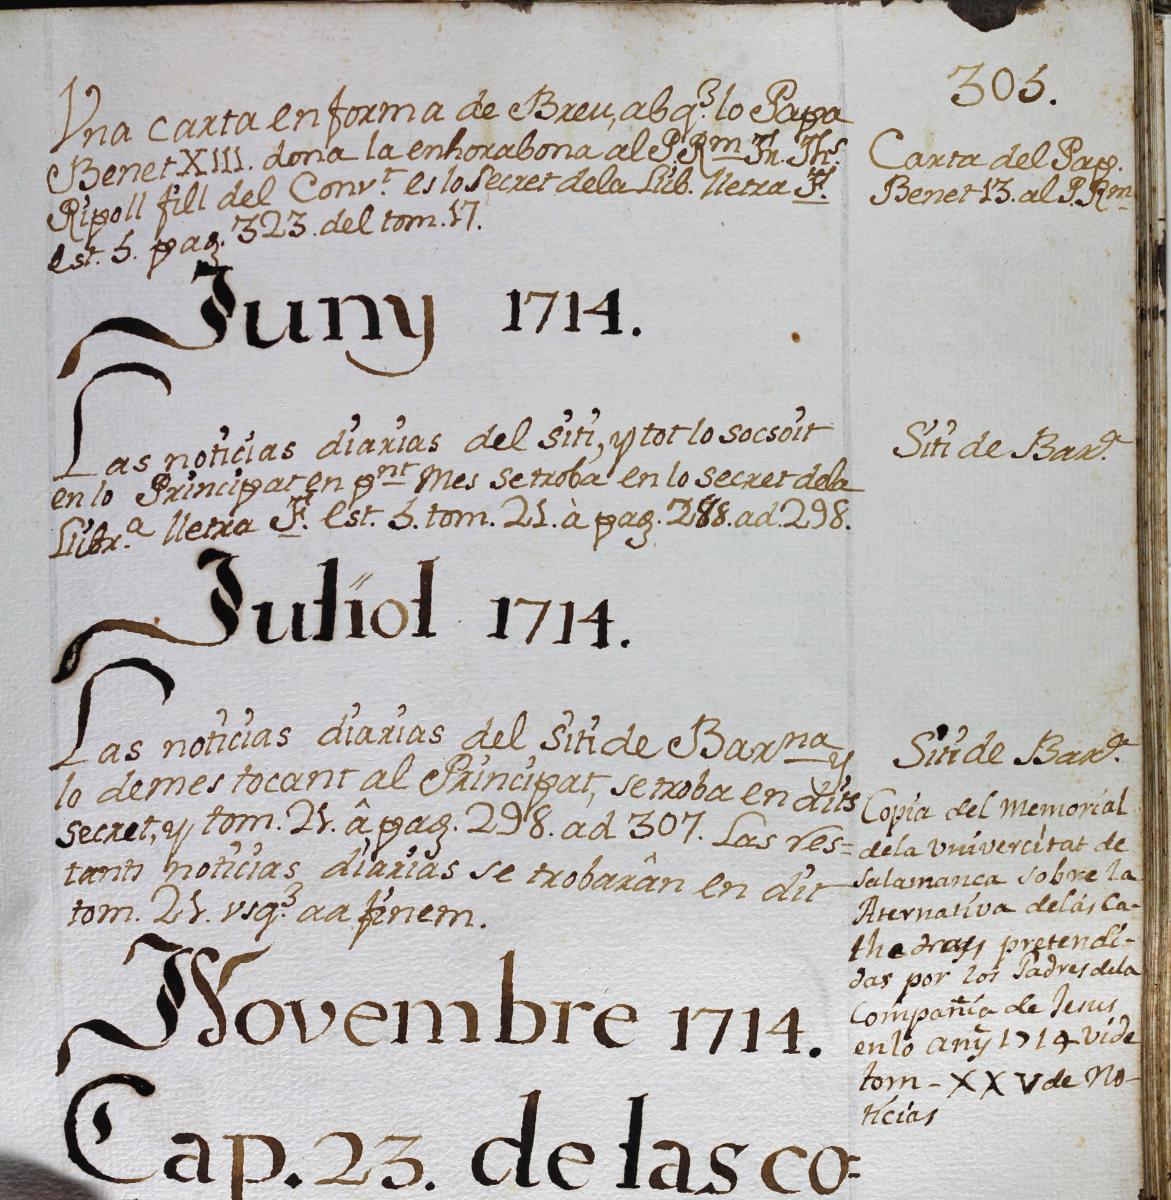 305.
Vna carta en forma de Breu, ab q.³ lo Papa
Benet XIII. dona la enhorabona al P. Rm Fr. Ths.
Ripoll fill del Convt. es lo secret dela Lib. lletra F.
est. 5. pag. 323. del tom. 17.
Carta del Pap.
Benet 13. al P. Rm.
Juny 1714.
Las noticias diarias del siti, y tot lo socsoit
en lo Principat en pnt Mes se troba en lo secret dela
Libr.a lletra F. est. 5. tom. 21. à pag. 288. ad. 298.
Siti de Bar.a
Juliol 1714.
Las noticias diarias del Siti de Barna y
lo demes tocant al Principat, se troba en dits
secret, y tom. 21. â pag. 298. ad 307. Las res=
tants noticias diarias se trobarân en dit
tom. 21. vsq.³ ad finem.
Siti de Bar.a
Copia del Memorial
dela Vnivercitat de
Salamanca sobre la
Aternativa delas Ca-
thedras pretendi-
das por los Padres dela
Compañia de Jesus
en lo any 1714 vide
tom - XXV de No-
ticias
Novembre 1714.
Cap. 23. de las co=